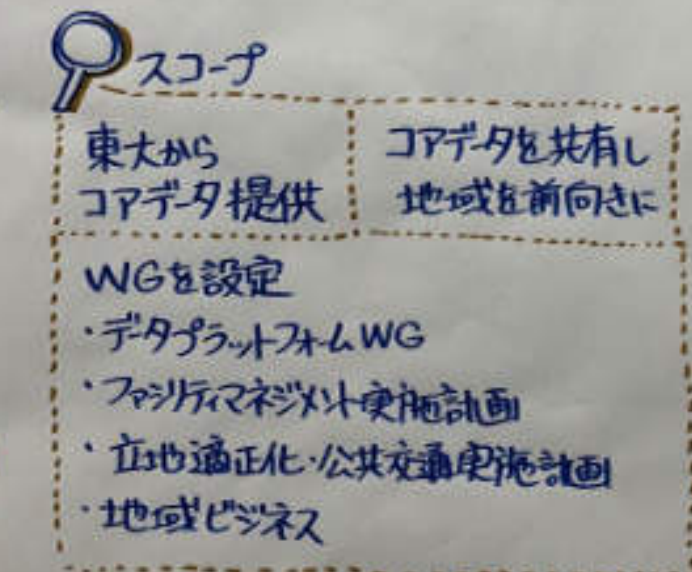 スコープ
東大から
コアデータ提供
コアデータを共有し
地域を前向きに
WGを設定
・データプラットフォームWG
・ファシリティマネジメント実施計画
・立地適正化・公共交通実施計画
・地域ビジネス